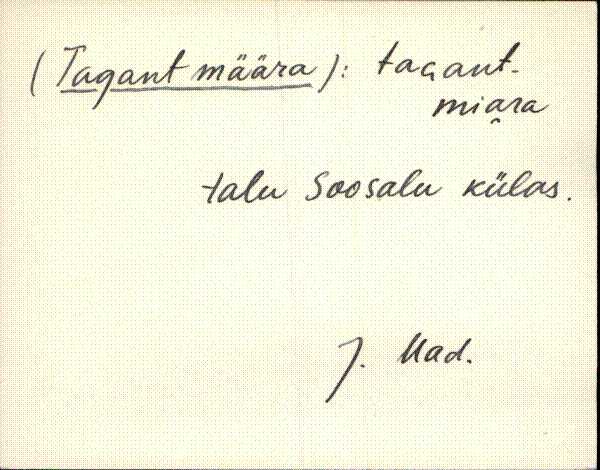 (Tagant määra): tagant-
miạra
talu Soosalu külas.
J. Mad.